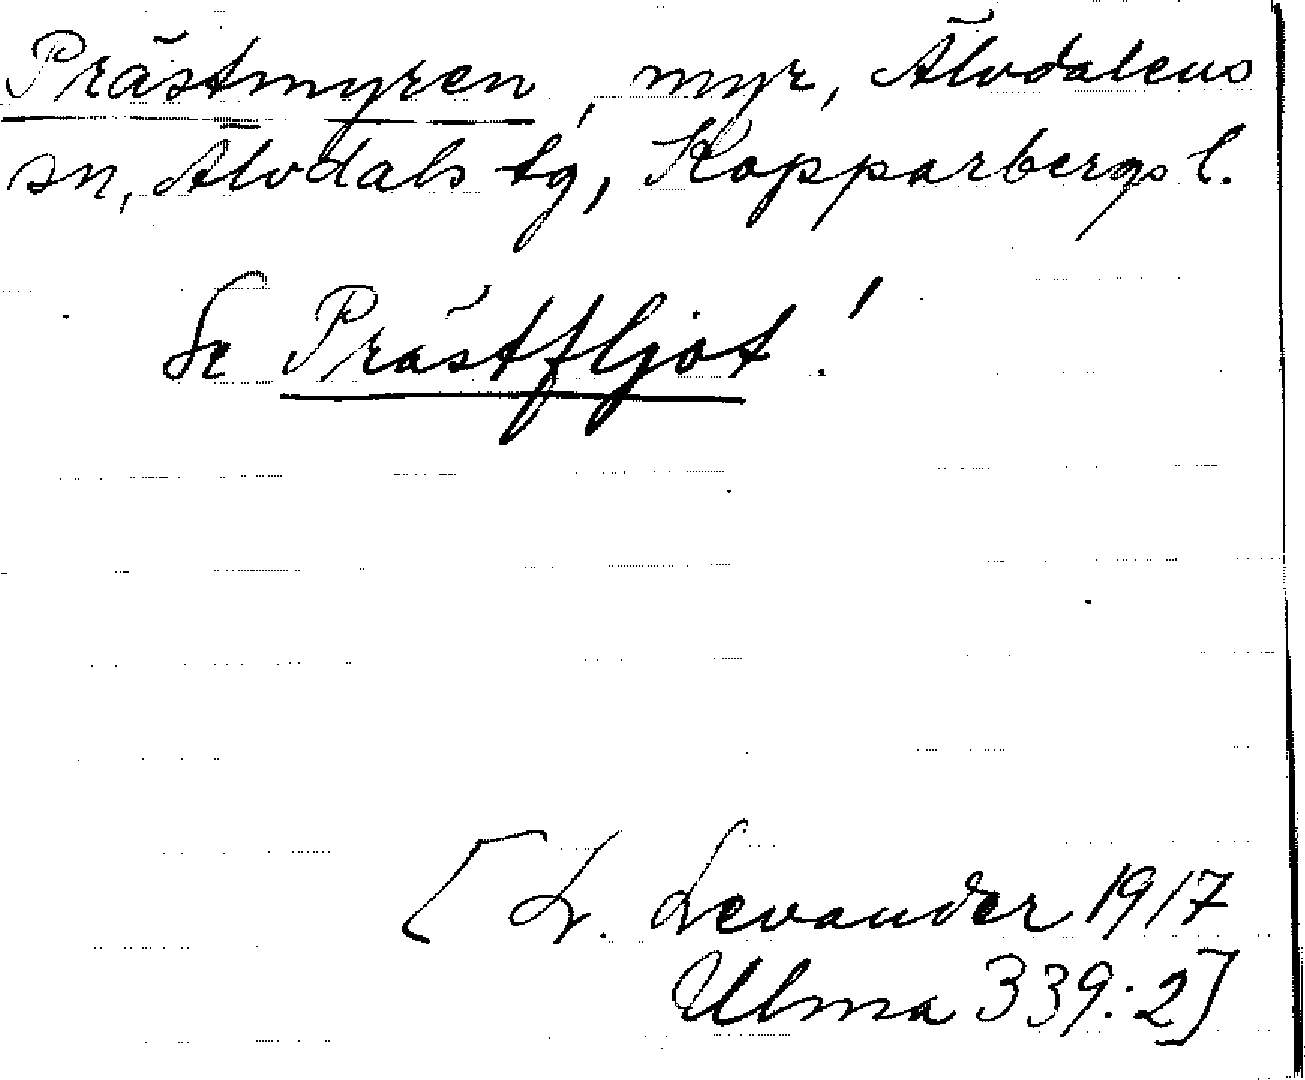 Prästmyren, myr, Älvdalens
sn, Älvdals tg, Kopparbergs l.
Se Prästfljot!
[L. Levander 1917
Ulma 339:2]